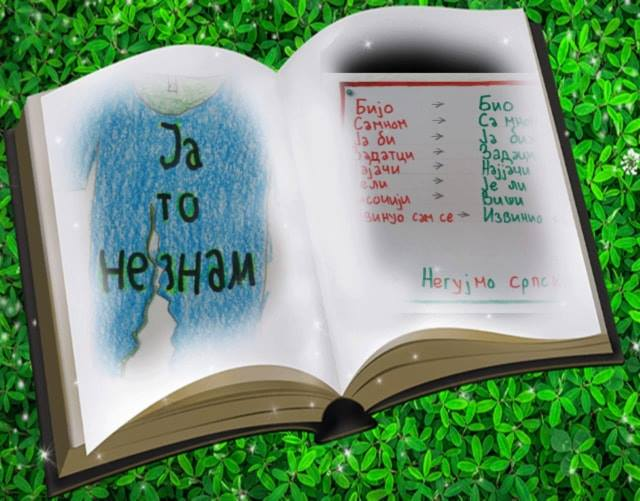 Ја
то
не знам
Бијо → Био
Самном → Са мно
Ја би → Ја биx
Задатци → Задаци
ајачи → Најјачи
ели → Је ли
сочији → Виши
звинуо сам се → Извинио
Негујмо српск